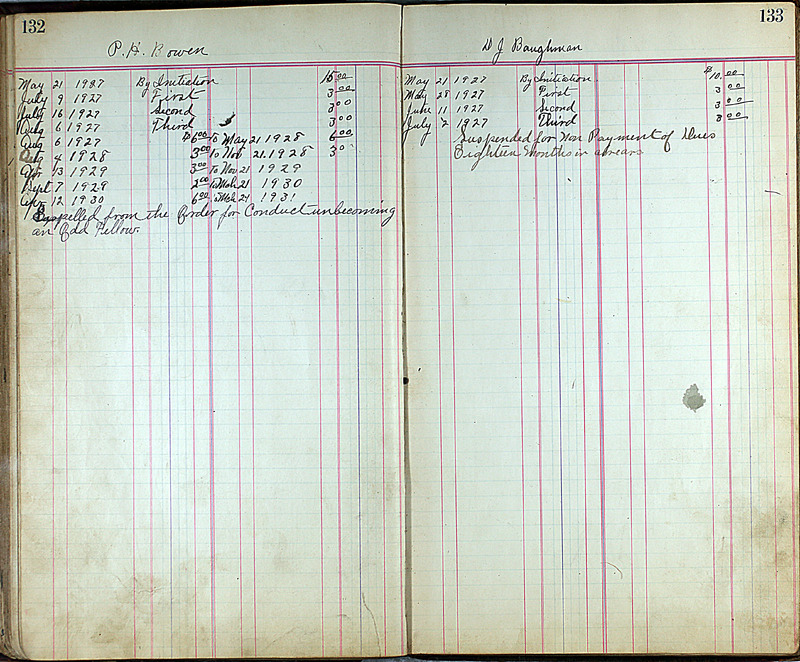 132
P. H. Bowen
May 21 1927 By Initiation 10 00
July 9 1927 First 3 00
July 16 1927 Second 3 00
Aug 6 1927 Third 3 00
Aug 6 1927 $6 00 to May 21 1928 6 00
Aug 4 1928 3 00 to Nov 21. 1928 3 00
Apr 13 1929 3 00 to Nov 21 1929
Sept 7 1929 2 00 to Mch 21 1930
Apr 12 1930 6 00 to Mch 21 1931
Expelled from the Order for Conduct unbecoming
an Odd Fellow.
133
D J Baughman
May 21 1927 By Initiation. $10.00
May 28 1927 First 3 00
June 11 1927 Second 3 00
July 2 1927 Third 3 00
Suspended for Non Payment of Dues
Eighteen Months in arrears